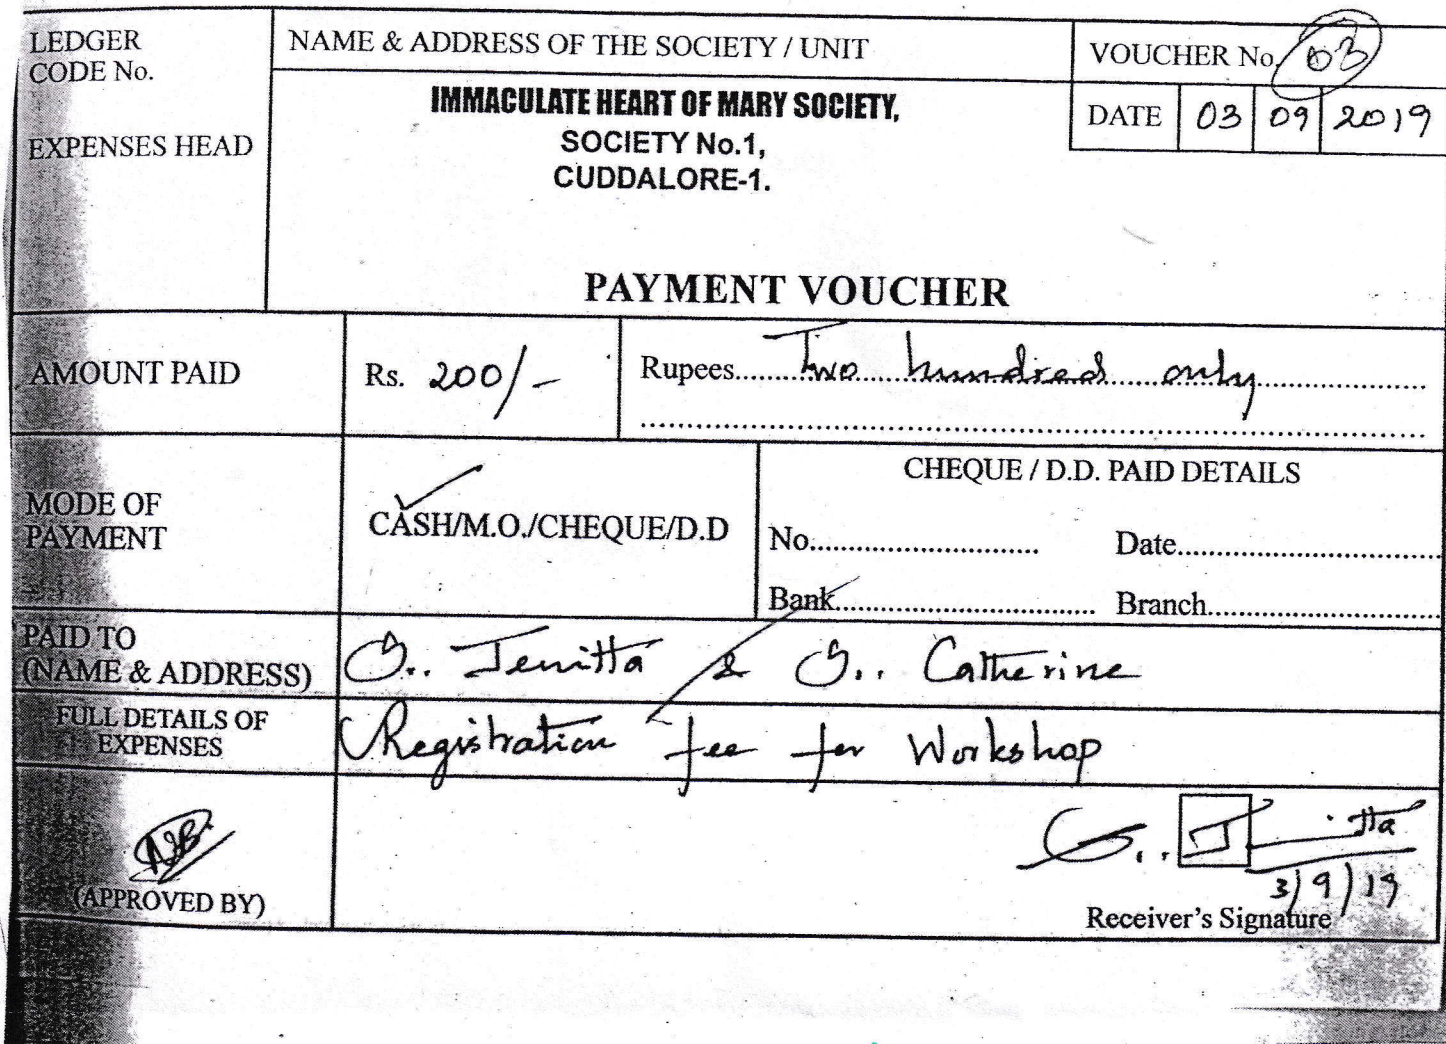 LEDGER
CODE No.
EXPENSES HEAD
NAME & ADDRESS OF THE SOCIETY / UNIT
IMMACULATE HEART OF MARY SOCIETY,
SOCIETY No.1,
CUDDALORE-1.
VOUCHER No. 03
DATE 03 09 2019
PAYMENT VOUCHER
AMOUNT PAID Rs. 200/- Rupees Two hundred only
MODE OF
PAYMENT
CASH/M.O./CHEQUE/D.D
CHEQUE / D.D. PAID DETAILS
No. Date
Bank Branch
PAID TO
(NAME & ADDRESS)
Jenitta & Catherine
FULL DETAILS OF
EXPENSES
Registration fee for Workshop
(APPROVED BY)
3/9/19
Receiver's Signature